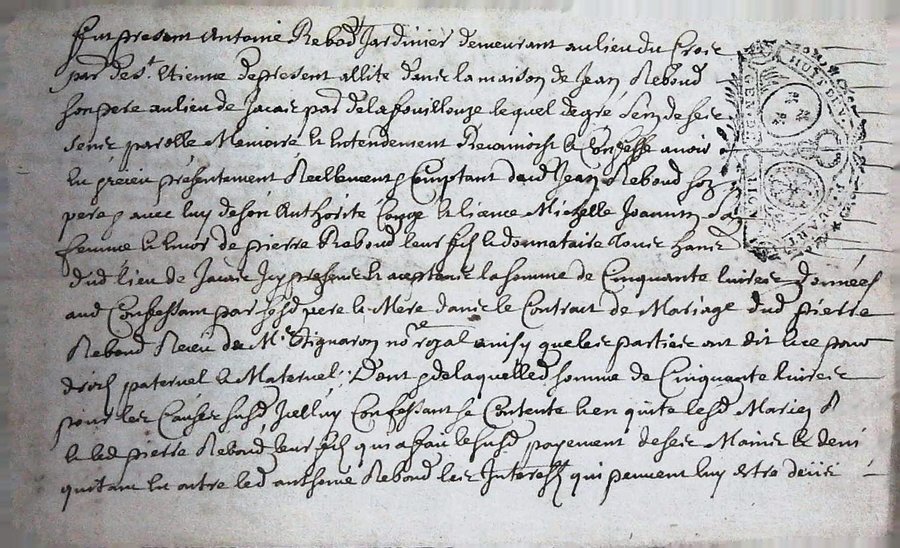 fut present Antoine Rebod Jardinier demeurant au lieu du Crois
par de st. Etienne depresent allité dans la maison de Jean Reboud
son pere au lieu de par de la fouillouze lequel de gré sein de ses
sens parolle Memoire et Entendement Recoinoist et Confesse avoir
Eu et receu présentement Reellement et Comptant dud Jean Reboud son
pere et avec luy de son Authorité Conge et licence Michelle Joannin sa
femme et de pierre Reboud leur fils et donnataire tous
dud lieu de Icy presens et aceptens la somme de Cinquante livres données
aud Confessant par sesd pere et Mere dans le Contract de Mariage dud pierre
Reboud Receu de Me. no.re royal ainsy que les parties ont dit et ce pour
droits paternel et Maternel; Dont et de laquelled somme de Cinquante livres
pour les Causes susd Icelluy Confessant se Contente et en quite lesd Mariés R
et led pierre Reboud leur fils qui a fait le susd payement de ses Mains et deni
quitant En outre led anthoine Reboud les Interests qui peuvent luy estre deus
GEN. DE LION
HUIT DEN.
QUART